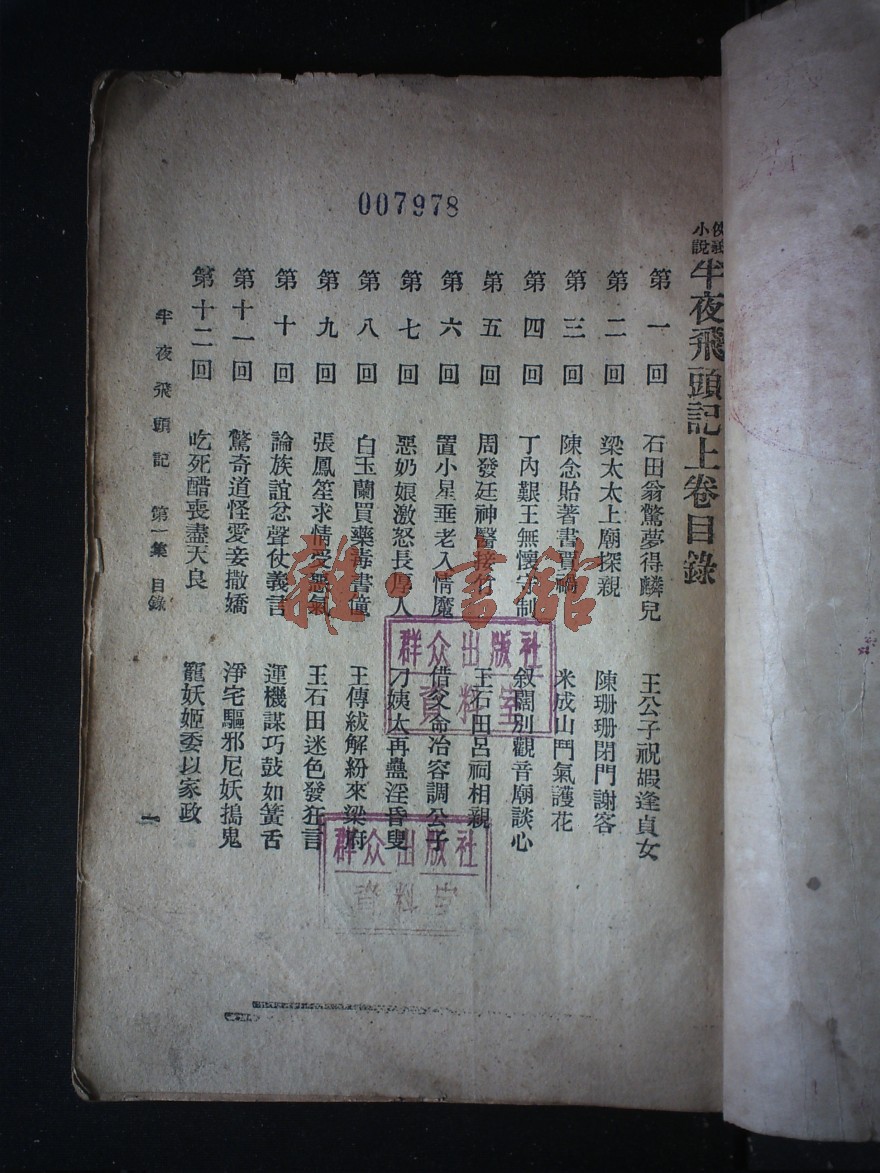 007978
小說
半夜飛頭記上卷目錄
第一回 石田翁驚夢得麟兒 王公子祝嘏逢貞女
第二回 梁太太上廟探親 陳珊珊閉門謝客
第三回 陳念貽著書買禍 米成山鬥氣護花
第四回 丁內艱王無懷守制 敘闊別觀音廟談心
第五回 周發廷神醫接竹 王石田呂祠相親
第六回 置小星垂老入情魔 借父命冶容調公子
第七回 惡奶娘激怒長厚人 刁姨太再蠱淫昏叟
第八回 白玉蘭買藥毒書僮 王傳紱解紛來梁府
第九回 張鳳笙求情受惡氣 王石田迷色發狂言
第十回 論族誼忿聲仗義言 運機謀巧鼓如簧舌
第十一回 驚奇道怪愛妾撒嬌 淨宅驅邪尼妖搗鬼
第十二回 吃死醋喪盡天良 寵妖姬委以家政
半夜飛頭記 第一集 目錄 一
雜·書館
群众出版社
資料室
群众出版社
資料室